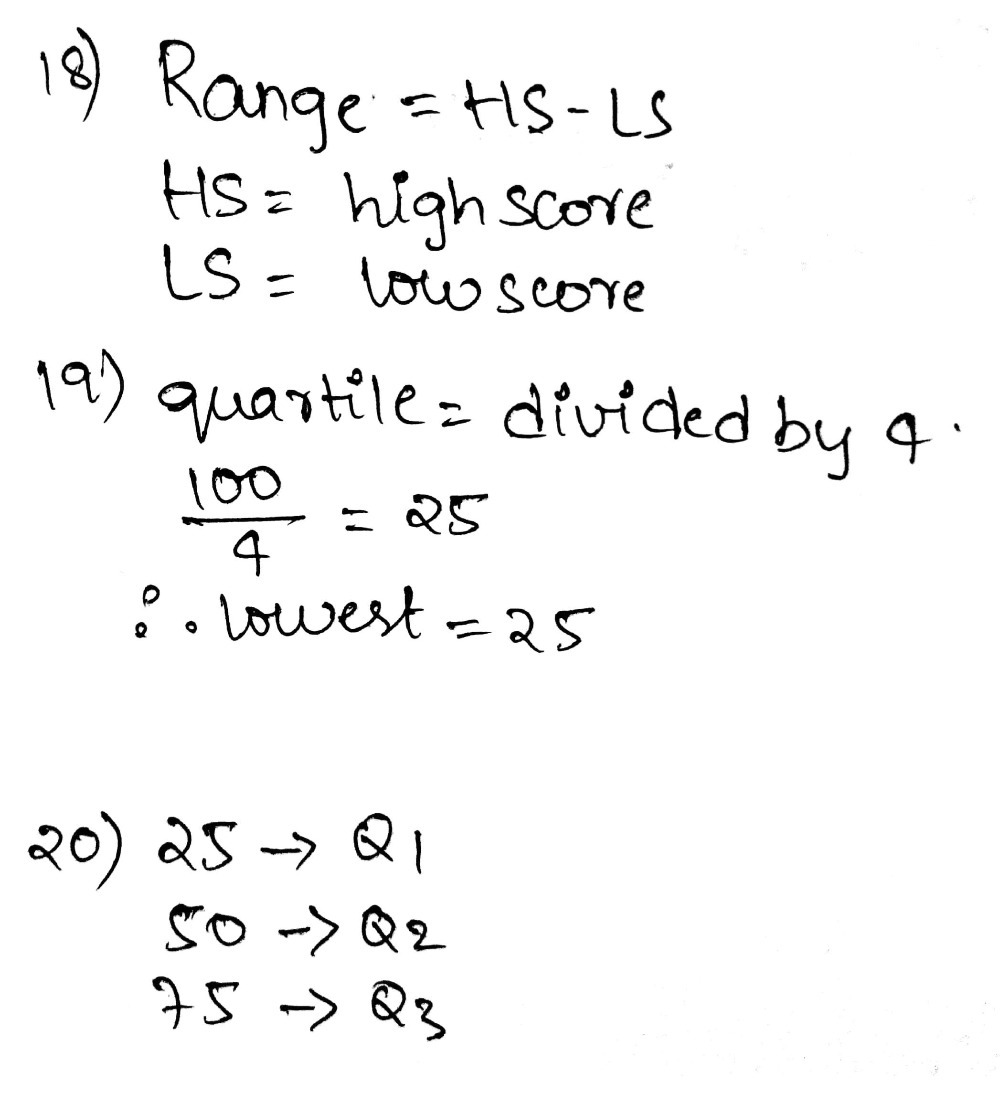 18) Range = HS - LS
HS = high score
LS = low score
19) quartile = divided by 4.
100/4 = 25
∴ lowest = 25
20) 25 → Q1
50 → Q2
75 → Q3